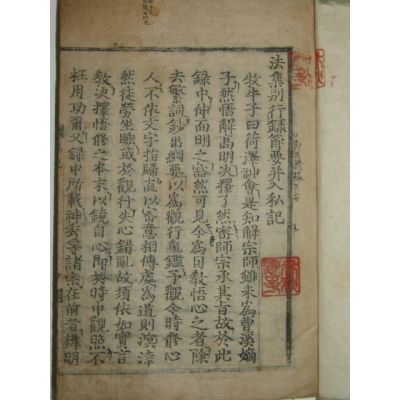 法集別行録節要并入私記
牧牛子曰荷澤神會是知解宗師雖未爲曹溪嫡
子然悟解高明決擇了然密師宗承其旨故於此
録中伸而明之豁然可見今爲因教悟心之者除
去繁詞鈔出綱要以爲觀行龜鑑予觀今時修心
人不依文字指歸直以密意相傳處爲道則溟涬
然徒勞坐睡或於觀行失心錯亂故須依如實言
教決擇悟修之本末以鏡自心即於時中觀照不
枉用功爾又録中所載神秀等諸宗在前者辨明